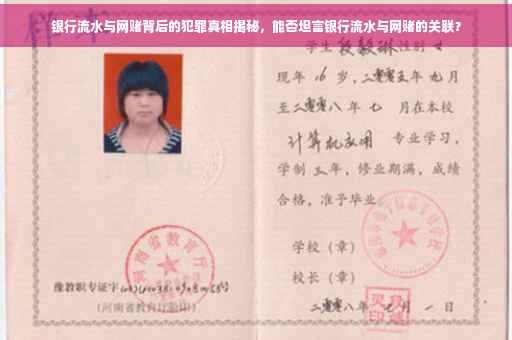 银行流水与网赌背后的犯罪真相揭秘，能否坦富银行流水与网赌的关联？
学生 段毅琳 性别 女
现年 16 岁，二零零五年 九 月
至二零零八 年 七 月在本校
计算机应用 专业学习，
学制 三 年，修业期满，成绩
合格，准予毕业
学校（章）
校长（章）
二零零八 年 七 月 一 日
河南省教育厅
豫教职专证字
（河南省教育厅验印）